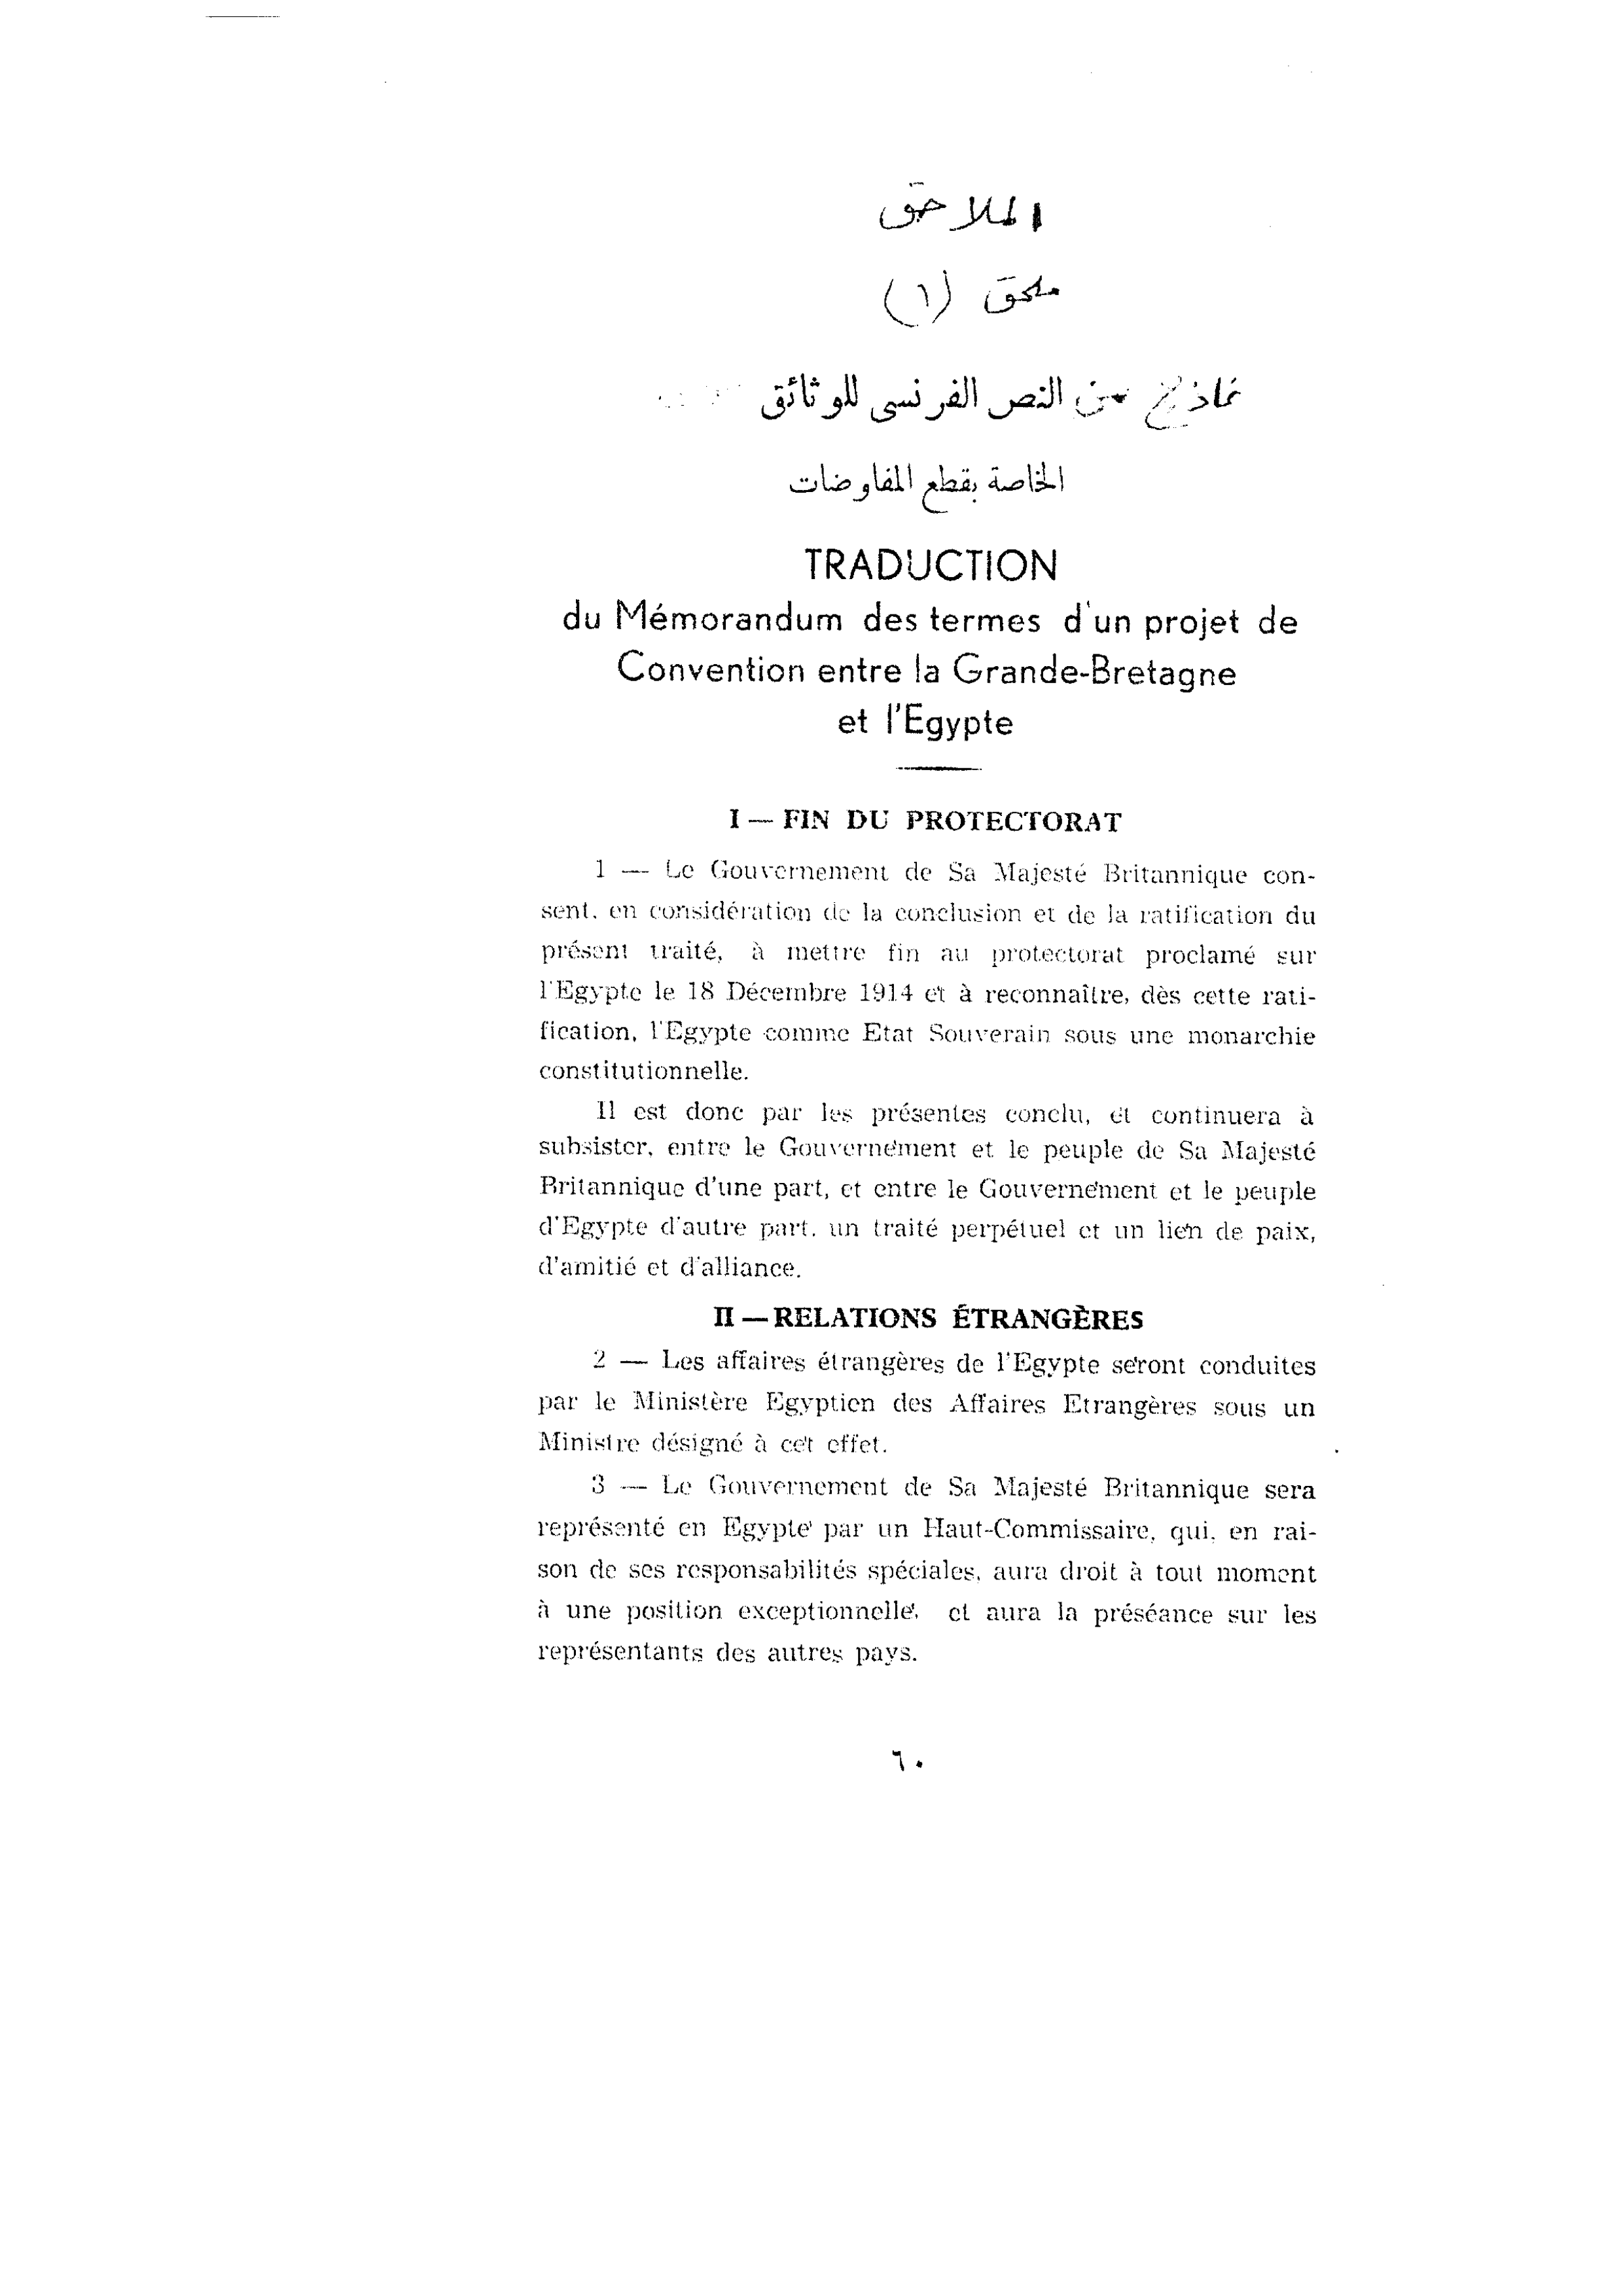 الملاحق
ملحق (١)
نماذج من النص الفرنسى للوثائق
الخاصة بقطع المفاوضات
TRADUCTION
du Mémorandum des termes d'un projet de
Convention entre la Grande-Bretagne
et l'Egypte
I — FIN DU PROTECTORAT
1 — Le Gouvernement de Sa Majesté Britannique con-
sent, en considération de la conclusion et de la ratification du
présent traité, à mettre fin au protectorat proclamé sur
l'Egypte le 18 Décembre 1914 et à reconnaître, dès cette rati-
fication, l'Egypte comme Etat Souverain sous une monarchie
constitutionnelle.
Il est donc par les présentes conclu, et continuera à
subsister, entre le Gouvernement et le peuple de Sa Majesté
Britannique d'une part, et entre le Gouvernement et le peuple
d'Egypte d'autre part, un traité perpétuel et un lien de paix,
d'amitié et d'alliance.
II — RELATIONS ÉTRANGÈRES
2 — Les affaires étrangères de l'Egypte seront conduites
par le Ministère Egyptien des Affaires Etrangères sous un
Ministre désigné à cet effet.
3 — Le Gouvernement de Sa Majesté Britannique sera
représenté en Egypte par un Haut-Commissaire, qui, en rai-
son de ses responsabilités spéciales, aura droit à tout moment
à une position exceptionnelle, et aura la préséance sur les
représentants des autres pays.
٦٠